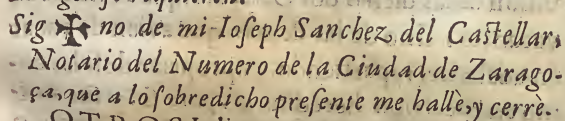 Sig ✠ no de mi Ioſeph Sanchez del Caſtellar,
Notario del Numero de la Ciudad de Zarago-
ça, que a lo ſobredicho preſente me hallè, y cerrè.
OTROSI